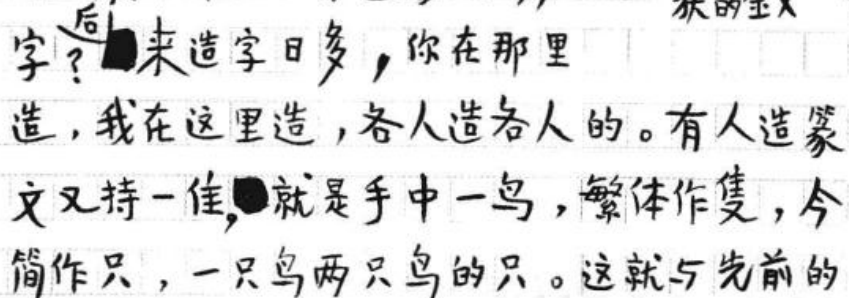 获的金文
字？后来造字日多，你在那里
造，我在这里造，各人造各人的。有人造篆
文又持一隹，就是手中一鸟，繁体作隻，今
简作只，一只鸟两只鸟的只。这就与先前的